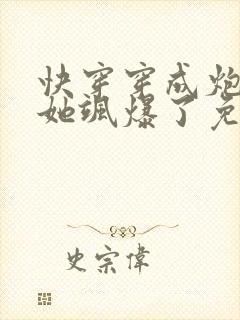 快穿穿成炮
她飒爆了免
史宗偉